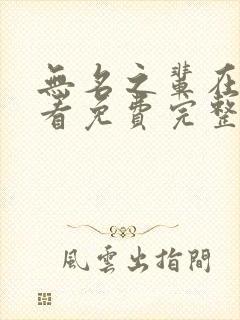 無名之輩在
看免費完整
風雲出指間